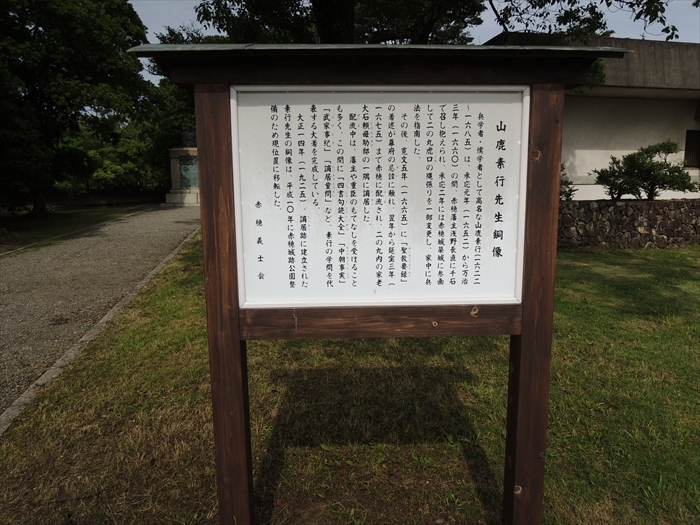 山鹿素行先生銅像
兵学者・儒学者として高名な山鹿素行(一六二二
〜一六八五)は、承応元年(一六五二)から万治
三年(一六六〇)の間、赤穂藩主浅野長直に千石
で召し抱えられ、承応二年には赤穂城築城に参画
して二の丸虎口の縄張りを一部変更し、家中に兵
法を指南した。
その後、寛文五年(一六六五)に「聖教要録」
の著述が幕府の忌諱に触れ、翌年から延宝三年(
一六七五)まで赤穂に配流され、二の丸内の家老
大石頼母助邸の一隅に謫居した。
配流中は、藩主や重臣のもてなしを受けること
も多く、この間に「四書句読大全」「中朝事実」
「武家事紀」「謫居童問」など、素行の学問を代
表する大著を完成している。
大正一四年(一九二五)、謫居跡に建立された
素行先生の銅像は、平成一〇年に赤穂城跡公園整
備のため現位置に移転した。
赤穂義士会